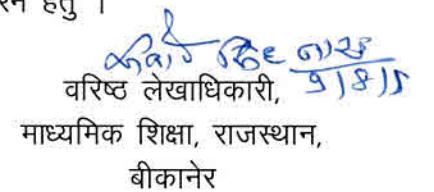 हेतु ।
सिंह
वरिष्ठ लेखाधिकारी,
माध्यमिक शिक्षा, राजस्थान,
बीकानेर